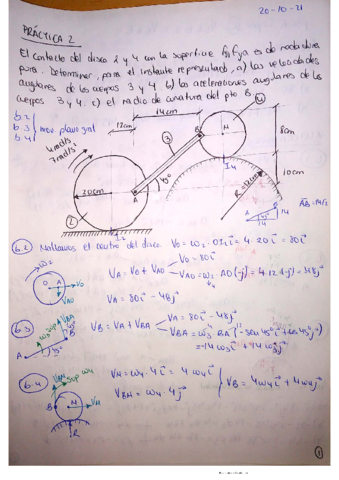 20-10-21
PRÁCTICA 2
El contacto del disco 2 y 4 con la superficie fija es de rodadura
pura. Determinar, para el instante representado, a) las velocidades
angulares de los cuerpos 3 y 4 b) las aceleraciones angulares de los
cuerpos 3 y 4. c) el radio de curvatura del pto B.
b.2
b.3
b.4
mov. plano gral
12cm
14cm
4rad/s
7rad/s²
20cm
O
A
45º
3
B
M
4
I4
8cm
10cm
R=12cm
2
I2
AB=14√2
A
B
45º
14
14
b.2 Hallamos el centro del disco VO = ω2 · OI2 i = 4 · 20 i = 80i
VA = VO + VAO
VO = 80i
VAO = ω2 · AO(-j) = 4·12(-j) = -48j
VA = 80i - 48j
ω2
O
A
VO
VAO
b.3
VB = VA + VBA
VA = 80i - 48j
VBA = ω3 BA (-sen 45º i + cos 45º j)
= -14 ω3 i + 14 ω3 j
A
B
45º
VBA
b.4
Sup ω4
VM = ω4 · 4 i = 4 ω4 i
VBM = ω4 · 4 j
VB = 4ω4 i + 4ω4 j
B
M
VM
R
1